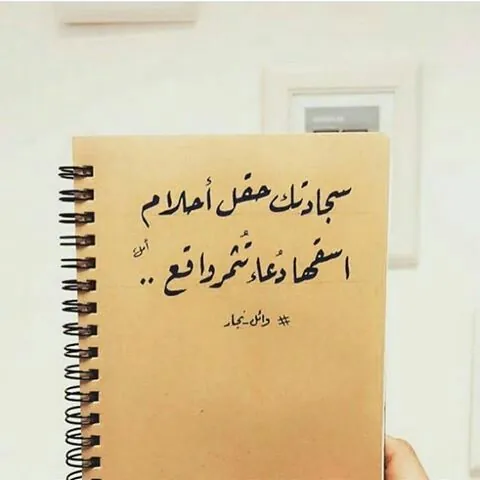 سجادتك حقل أحلام
اسقها دُعاء تُثمر واقع ..
أمل
# وائل_نجار